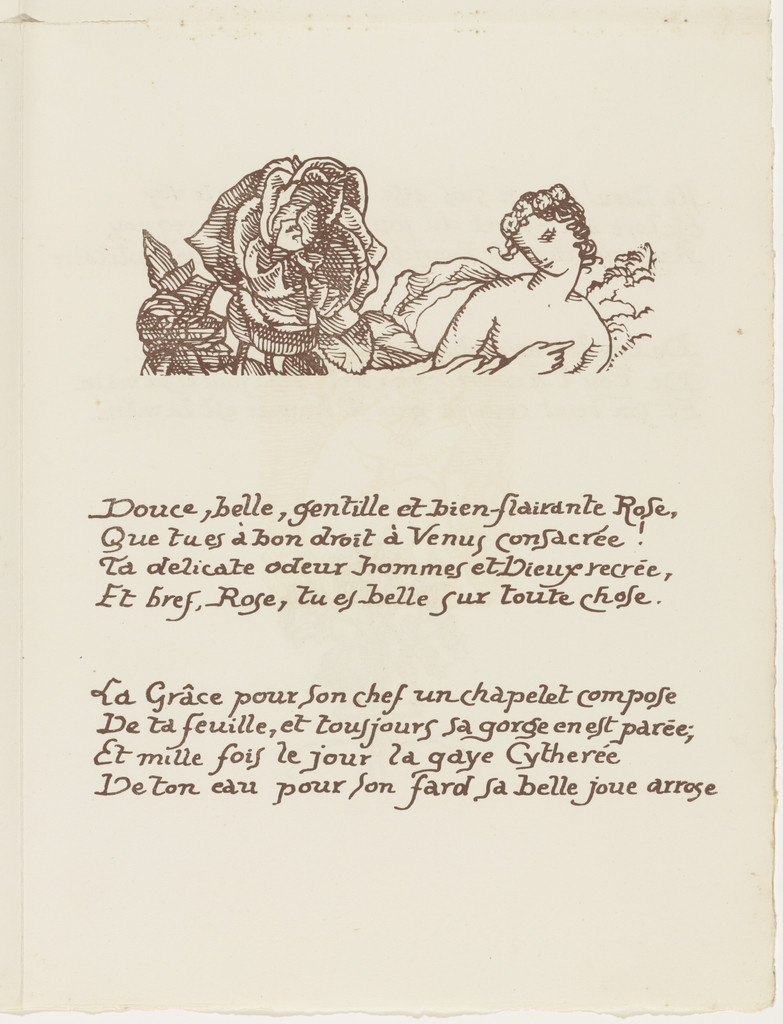 Douce, belle, gentille et bien-flairante Rose,
Que tu es à bon droit à Venus consacrée !
Ta delicate odeur hommes et Dieux recrée,
Et bref, Rose, tu es belle sur toute chose.
La Grâce pour son chef un chapelet compose
De ta feuille, et tousjours sa gorge en est parée;
Et mille fois le jour la gaye Cytherée
De ton eau pour son fard sa belle joue arrose